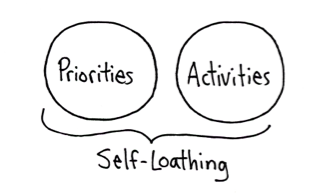 Priorities
Activities
Self-Loathing